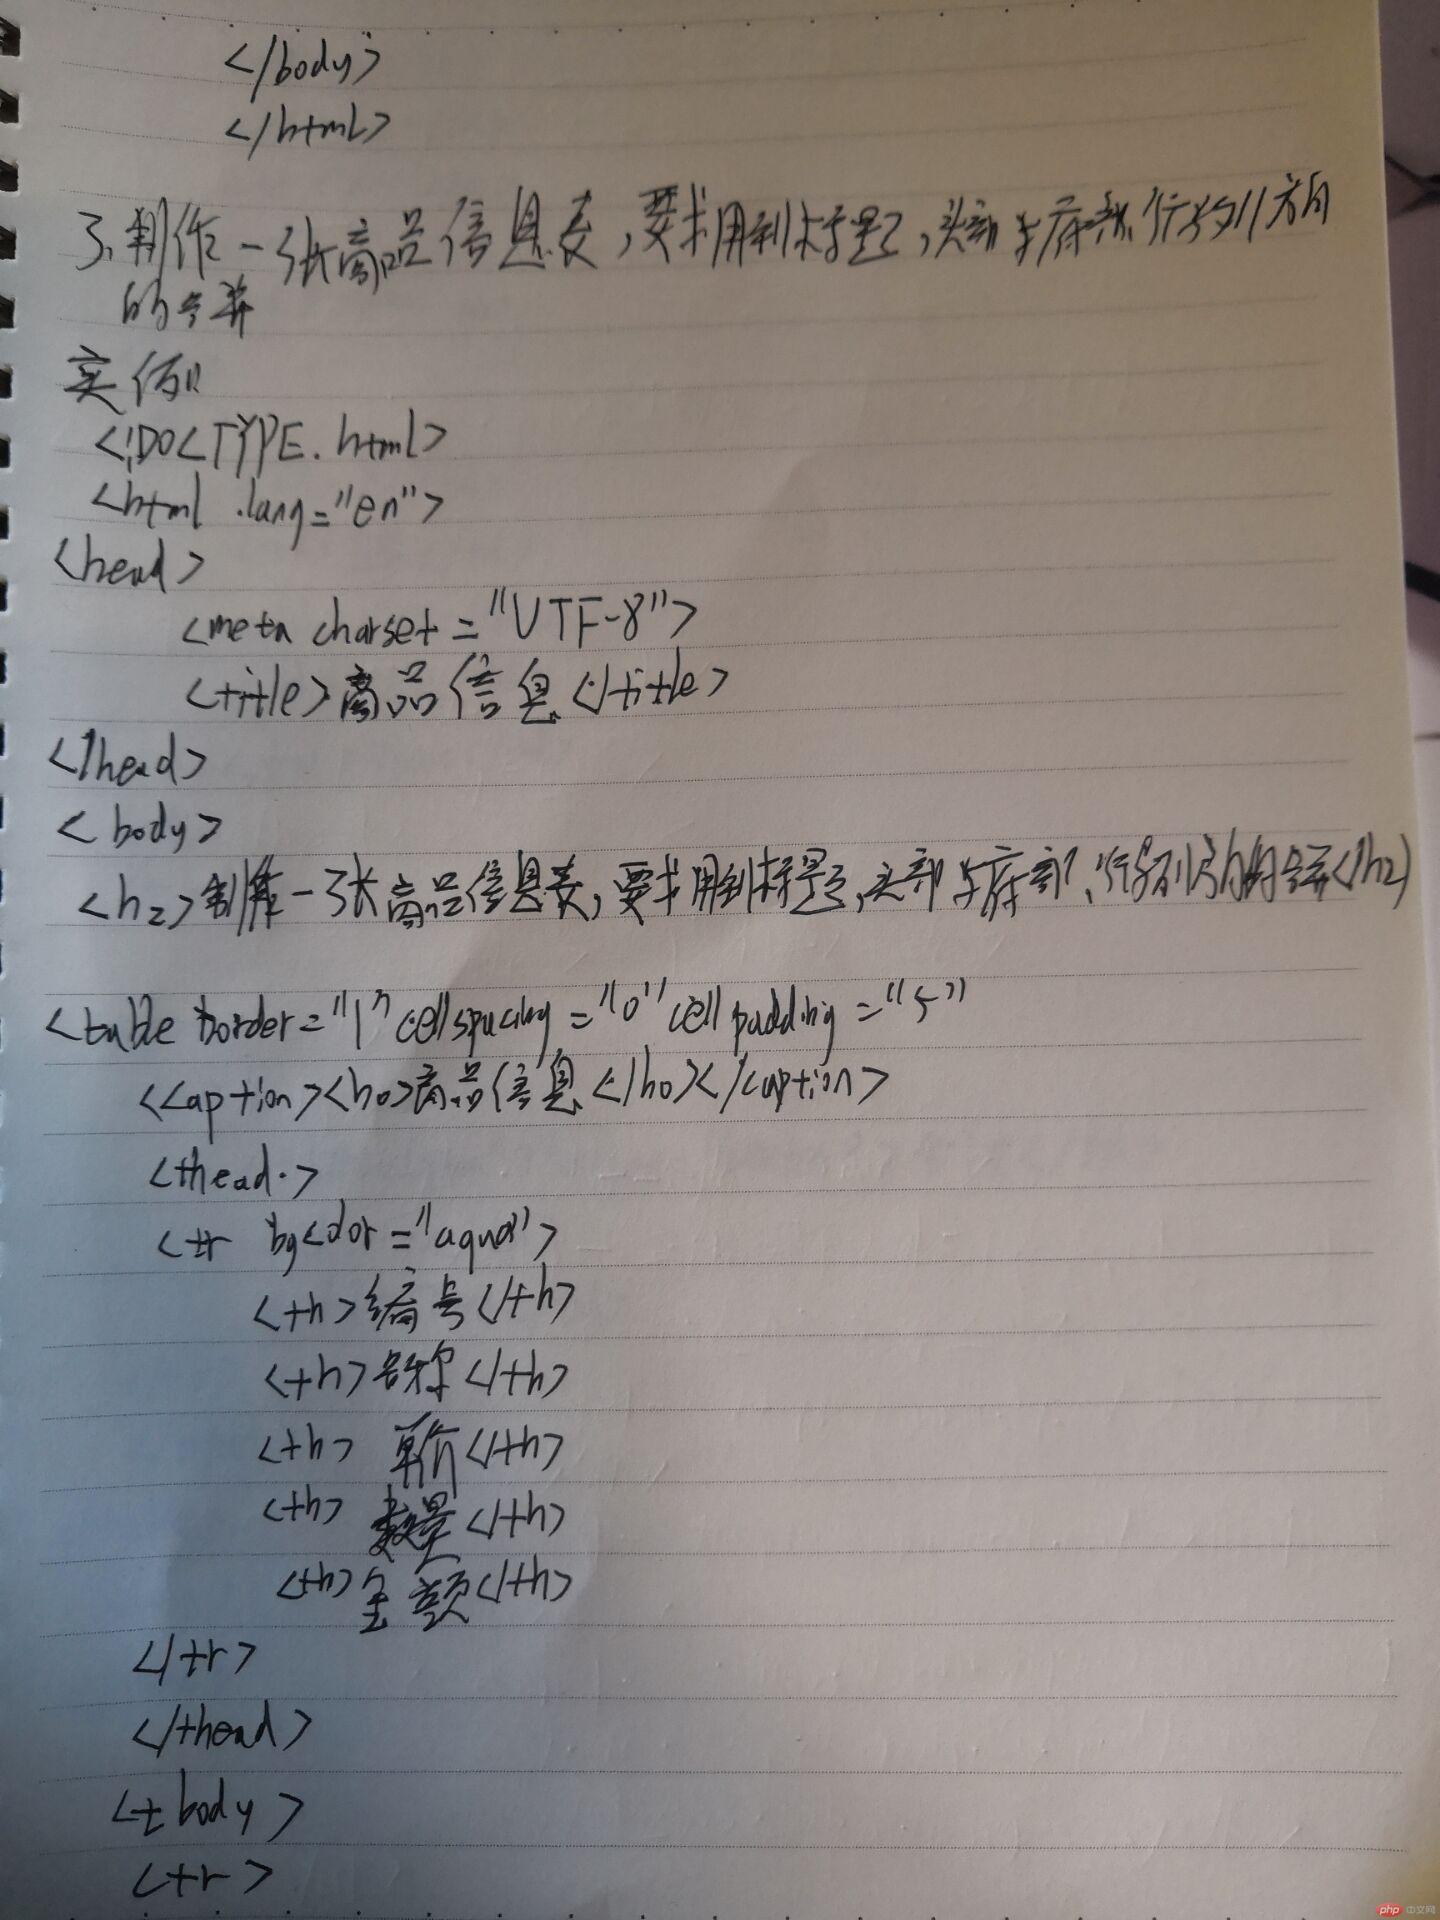 </body>
</html>
3.制作一张商品信息表,要求用到标题,头部与底部,行与列方向
的合并
实例
<!DOCTYPE.html>
<html lang="en">
<head>
<meta charset="UTF-8">
<title>商品信息</title>
</head>
<body>
<h2>制作一张商品信息表,要求用到标题,头部与底部、行与列方向的合并</h2>
<table border="1" cellspacing="0" cellpadding="5"
<caption><h0>商品信息</h0></caption>
<thead>
<tr bgcolor="aqua">
<th>编号</th>
<th>名称</th>
<th>单价</th>
<th>数量</th>
<th>金额</th>
</tr>
</thead>
<tbody>
<tr>
php 中文网